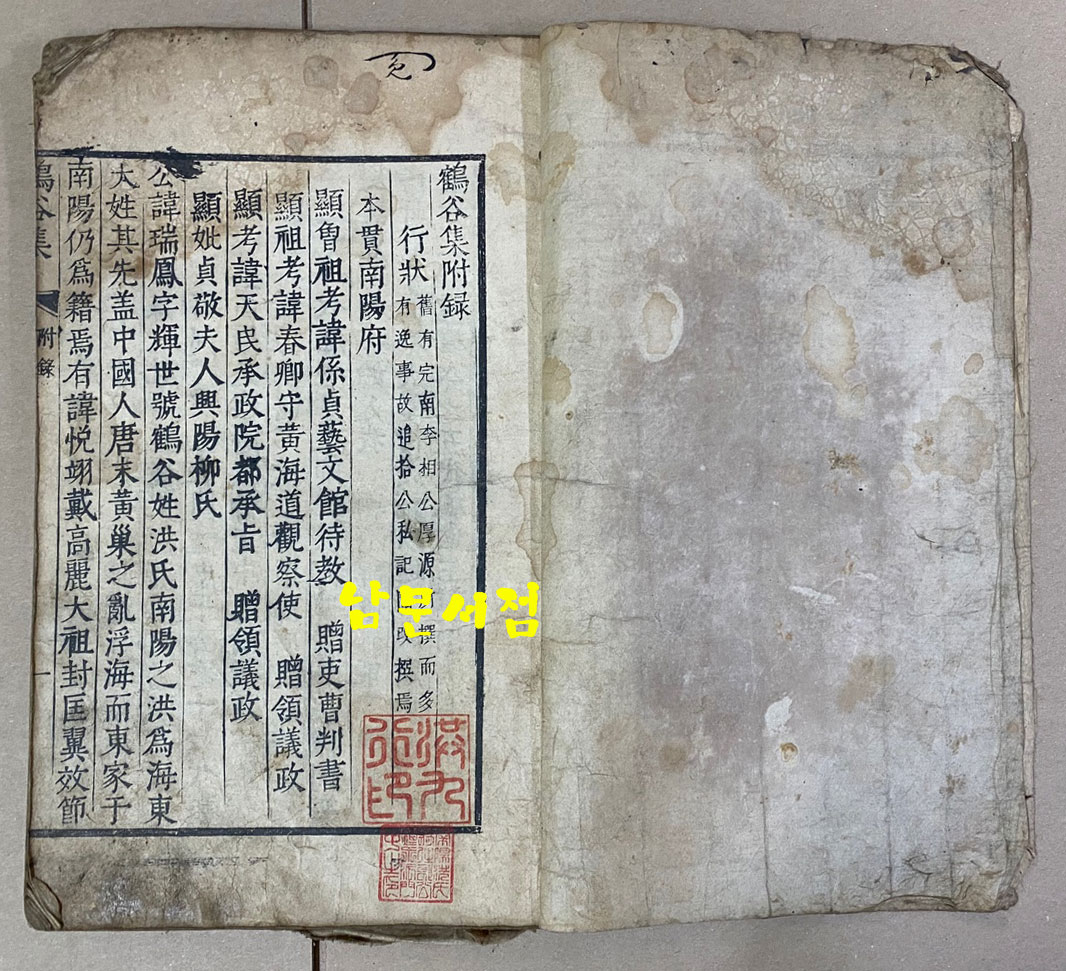 鶴谷集附録
行狀 舊有完南李相公厚源 撰而多
有逸事故追拾公私記 改撰焉
本貫南陽府
顯曾祖考諱係貞藝文館待教 贈吏曹判書
顯祖考諱春卿守黃海道觀察使 贈領議政
顯考諱天民承政院都承旨 贈領議政
顯妣貞敬夫人興陽柳氏
公諱瑞鳳字輝世號鶴谷姓洪氏南陽之洪爲海東
大姓其先盖中國人唐末黃巢之亂浮海而東家于
南陽仍爲籍焉有諱悅翊戴高麗大祖封匡翼效節
鶴谷集 附錄 一
남문서점